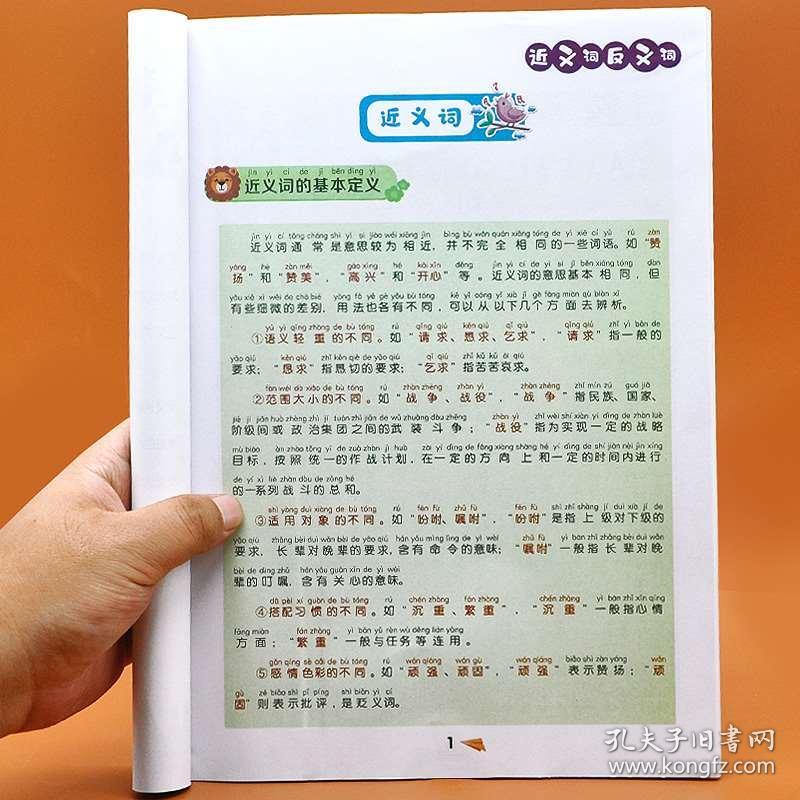 近义词反义词
近义词
jìn yì cí de jī běn dìng yì
近义词的基本定义
jìn yì cí tōng cháng shì yì si jiào wéi xiāng jìn bìng bù wán quán xiāng tóng de yì xiē cí yǔ rú zàn
近义词通常是意思较为相近，并不完全相同的一些词语。如“赞
yáng hé zàn měi gāo xìng hé kāi xīn děng jìn yì cí de yì si jī běn xiāng tóng dàn
扬”和“赞美”，“高兴”和“开心”等。近义词的意思基本相同，但
yǒu xiē xì wēi de chā bié yòng fǎ yě gè yǒu bù tóng kě yǐ cóng yǐ xià jǐ gè fāng miàn qù biàn xī
有些细微的差别，用法也各有不同，可以从以下几个方面去辨析。
yǔ yì qīng zhòng de bù tóng rú qǐng qiú kěn qiú qǐ qiú qǐng qiú zhǐ yì bān de
①语义轻重的不同。如“请求、恳求、乞求”，“请求”指一般的
yāo qiú kěn qiú zhǐ kěn qiè de yāo qiú qǐ qiú zhǐ kǔ kǔ āi qiú
要求；“恳求”指恳切的要求；“乞求”指苦苦哀求。
fàn wéi dà xiǎo de bù tóng rú zhàn zhēng zhàn yì zhàn zhēng zhǐ mín zú guó jiā
②范围大小的不同。如“战争、战役”，“战争”指民族、国家、
jiē jí jiān huò zhèng zhì jí tuán zhī jiān de wǔ zhuāng dòu zhēng zhàn yì zhǐ wèi shí xiàn yí dìng de zhàn lüè
阶级间或政治集团之间的武装斗争；“战役”指为实现一定的战略
mù biāo àn zhào tǒng yī de zuò zhàn jì huà zài yí dìng de fāng xiàng shàng hé yí dìng de shí jiān nèi jìn xíng
目标，按照统一的作战计划，在一定的方向上和一定的时间内进行
de yí xì liè zhàn dòu de zǒng hé
的一系列战斗的总和。
shì yòng duì xiàng de bù tóng rú fēn fù zhǔ fù fēn fù shì zhǐ shàng jí duì xià jí de
③适用对象的不同。如“吩咐、嘱咐”，“吩咐”是指上级对下级的
yāo qiú zhǎng bèi duì wǎn bèi de yāo qiú hán yǒu mìng lìng de yì wèi zhǔ fù yì bān zhǐ zhǎng bèi duì wǎn
要求，长辈对晚辈的要求，含有命令的意味；“嘱咐”一般指长辈对晚
bèi de dīng zhǔ hán yǒu guān xīn de yì wèi
辈的叮嘱，含有关心的意味。
dā pèi xí guàn de bù tóng rú chén zhòng fán zhòng chén zhòng yì bān zhǐ xīn qíng
④搭配习惯的不同。如“沉重、繁重”，“沉重”一般指心情
fāng miàn fán zhòng yì bān yǔ rèn wù děng lián yòng
方面；“繁重”一般与任务等连用。
gǎn qíng sè cǎi de bù tóng rú wán qiáng wán gù wán qiáng biǎo shì zàn yáng wán
⑤感情色彩的不同。如“顽强、顽固”，“顽强”表示赞扬；“顽
gù zé biǎo shì pī píng shì biǎn yì cí
固”则表示批评，是贬义词。
1
孔夫子旧书网
www.kongfz.com